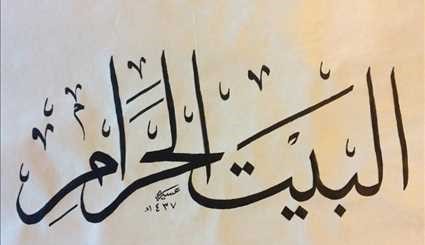 البَيْتَ الْحَرَامِ
١٤٣٧هـ